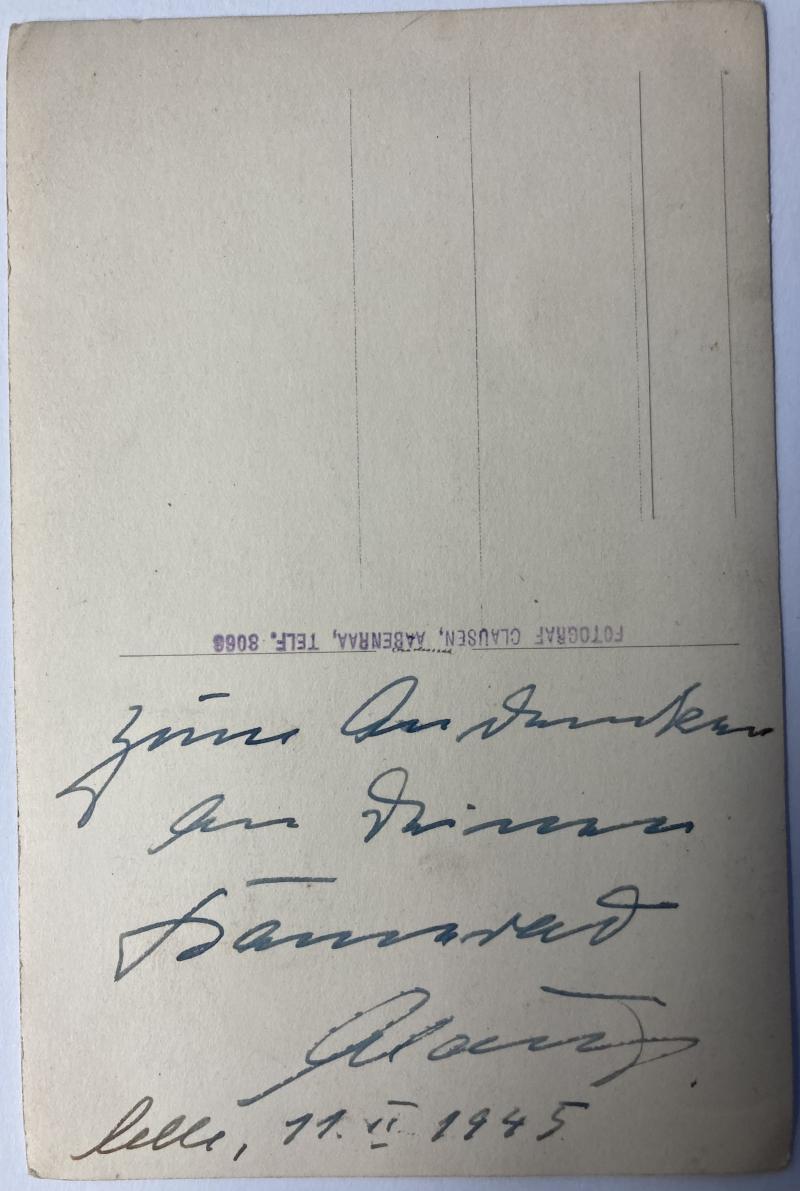 FOTOGRAF CLAUSEN, AABENRAA, TELF.
zum Andenken
an Deinen
Kamerad
Celle, 11. II 1945